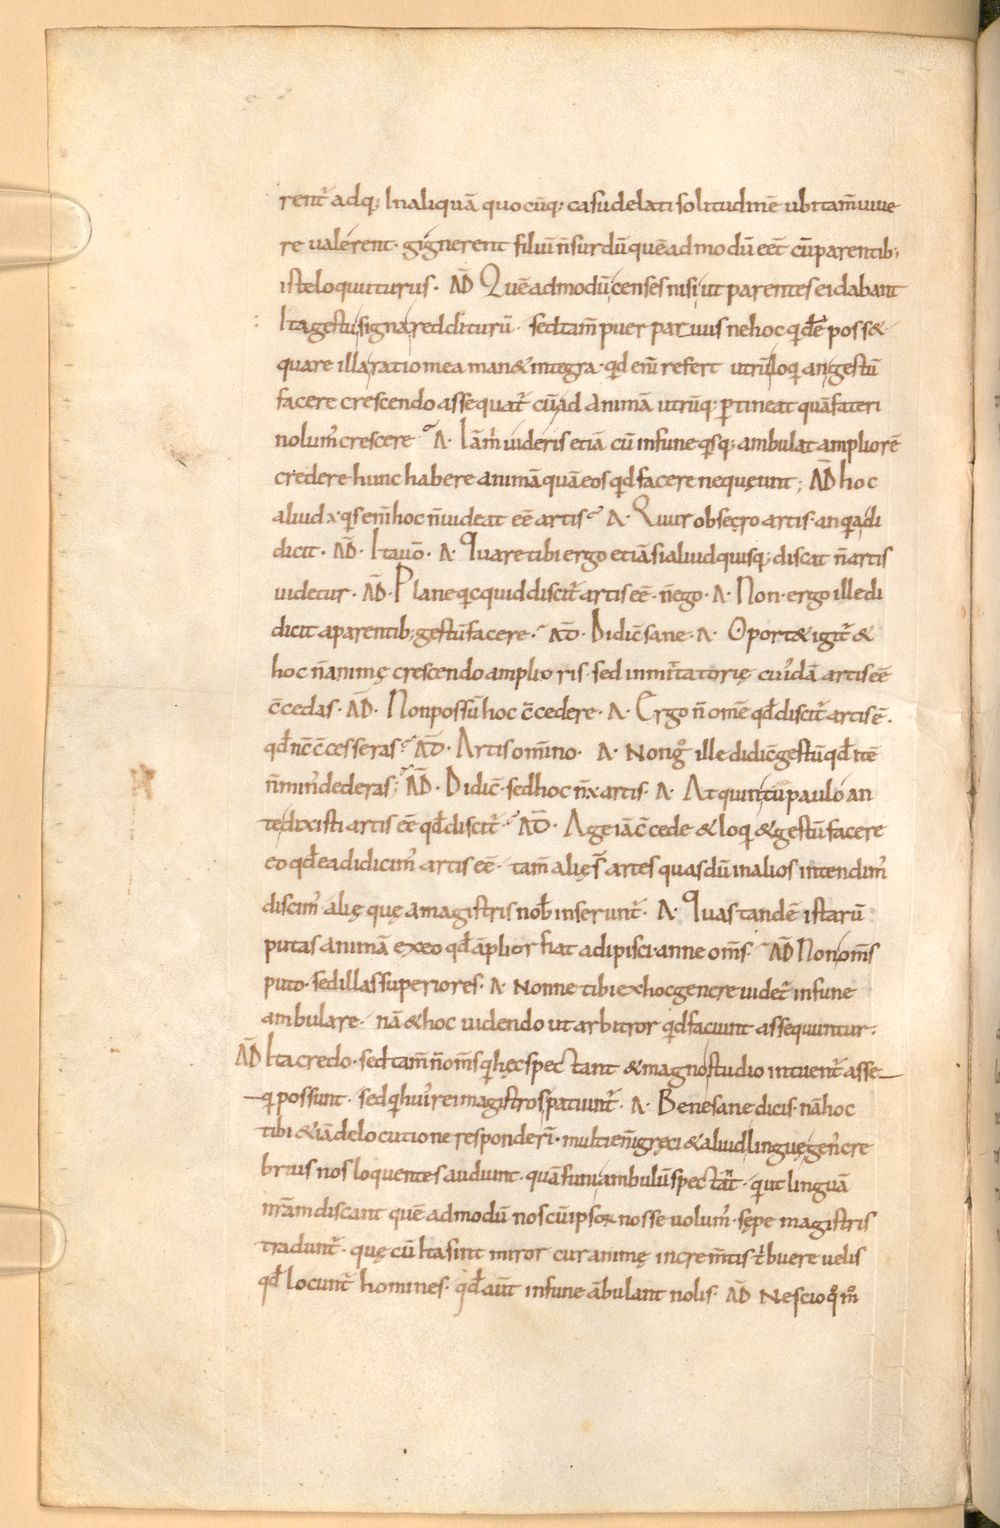 rent᷑ adq; In aliquā quocūq; casu delati solitudinē ubi tam̄ uiue
re ualerent · gignerent filiū n̄ surdū quēadmodū eēt cū parentib;
iste loquuturus · AD̄ Quēadmodū censes nisi ut parentes ei dabant
Ita gestu signa redditurū · sed tam̄ puer paruus ne hoc qdē poss&
quare illa ratio mea man& integra · qd eni refert utrū loqi an gestū
facere crescendo assequat᷑ cū ad animā utrūq; ptineat quā fateri
nolum᷒ crescere · A · Iam̄ uideris etiā cū in fune qsq; ambulat ampliorē
credere hunc habere animā quā eos qd facere nequęunt ; AD̄ hoc
aliud ÷ qs enī hoc n̄ uideat eē artis · A · Quur obsecro artis · an qa di
dicit · AD̄ · Ita uō · A · Quare tibi ergo etiā si aliud quisq; discat n̄ artis
uidetur · AD̄ · Plane qcquid discit᷑ artis eē · n̄ ego · A · Non · ergo ille di
dicit a parentib; gestū facere · AD̄ · Didic̄ sane · A · Oport& igit᷑ &
hoc n̄ animę crescendo amplioris · sed inmitatorię cuidā artis eē
c̄cedas · AD̄ · Non possū hoc c̄cedere · A · Ergo n̄ om̄e qd̄ discit᷑ artis ē ·
qd̄ nc̄ c̄cesseras · AD̄ · Artis om̄ino · A · Non g° ille didic̄ gestū qd̄ itē
n̄ min᷒ dederas ; AD̄ · Didic̄ · sed hoc n̄ ÷ artis · A · Atquin tu paulo an
te dixisti artis eē qd̄ discit᷑ · AD̄ · Age iā c̄cede & loqi & gestū facere
eo qd̄ ea didicim᷒ artis eē · tam̄ alię s̄ artes quas dū in alios intendim᷒
discim᷒ alię quę a magistris nob̄ inserunt᷑ · A · Quas tandē istarū
putas animā ex eo qd̄ āplior fiat adipisci · anne om̄s · AD̄ Non om̄s
puto · sed illas superiores · A · Nonne tibi ex hoc genere uidet᷑ in fune
ambulare · nā & hoc uidendo ut arbitror qd faciunt assequuntur ·
AD̄ Ita credo · sed tam̄ n̄ om̄s q hęc spectant & magno studio intuent᷑ asse
qi possunt · sed q hui᷒ rei magistros patiunt᷑ · A · Bene sane dicis · nā hoc
tibi & iā de locutione responderī · multi enī gręci & aliud linguę gen᷒ cre
brius nos loquentes audiunt · quā funiambulū spectāt · q ut linguā
nr̄am discant quē admodū nos cū ipsoꝝ nosse uolum᷒ · sępe magistris
tradunt᷑ · quę cū Ita sint miror cur animę increm̄tis t᷑buere uelis
qd̄ locunt᷑ homines · qd̄ aūt in fune ābulant nolis · AD̄ Nescio q°m°